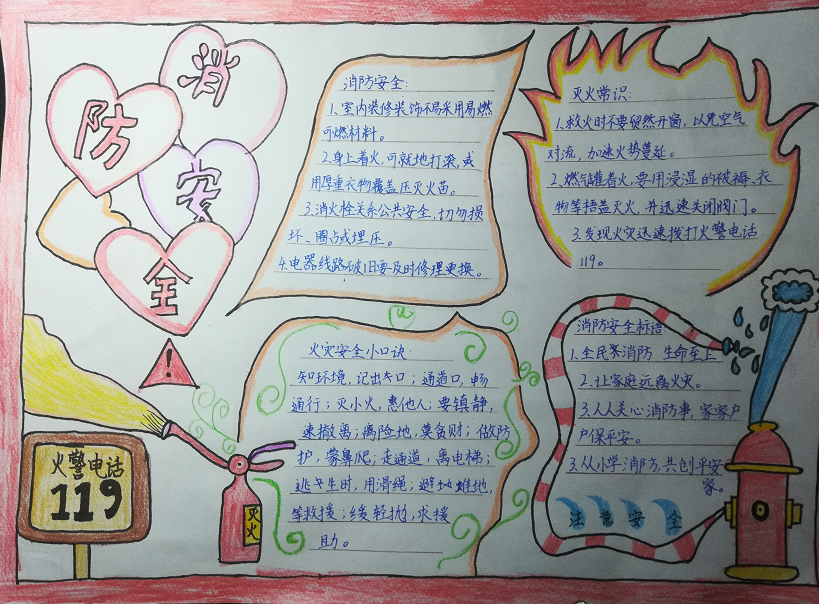 消
防
安
全
消防安全:
1.室内装修装饰不易采用易燃
可燃材料。
2.身上着火,可就地打滚,或
用厚重衣物覆盖压灭火苗。
3.消火栓关系公共安全,切勿损
坏、圈占或埋压。
4.电器线路破旧要及时修理更换。
灭火常识:
1.救火时不要贸然开窗,以免空气
对流,加速火势蔓延。
2.燃气罐着火,要用浸湿的被褥、衣
物等捂盖灭火,并迅速关闭阀门。
3.发现火灾迅速拨打火警电话
119。
火灾安全小口诀:
知环境,记出口;通道口,畅
通行;灭小火,惠他人;要镇静,
速撤离;离险地,莫贪财;做防
护,蒙鼻爬;走通道,离电梯;
逃生时,用滑绳;避难地,
等救援;缓轻抛,求援
助。
消防安全标语
1.全民系消防 生命至上
2.让家庭远离火灾。
3.人人关心消防事,家家户
户保平安。
3.从小学消方,共创平安
家。
注意安全
火警电话
119
灭火
!